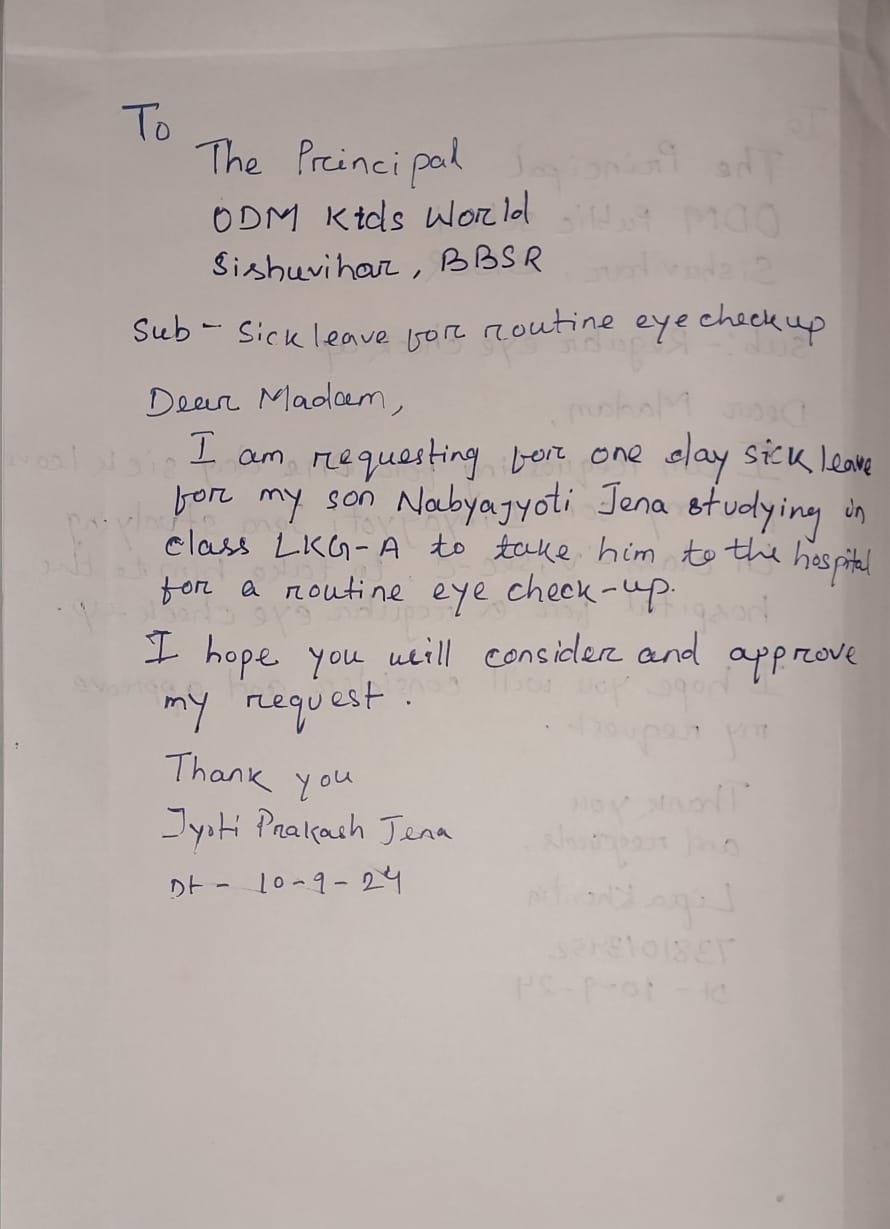 To
The Principal
ODM Kids World
Sishuvihar, BBSR
Sub - Sick leave for routine eye checkup
Dear Madam,
I am requesting for one day sick leave
for my son Nabyajyoti Jena studying in
class LKG-A to take him to the hospital
for a routine eye check-up.
I hope you will consider and approve
my request.
Thank you
Jyoti Prakash Jena
Dt - 10-9-24